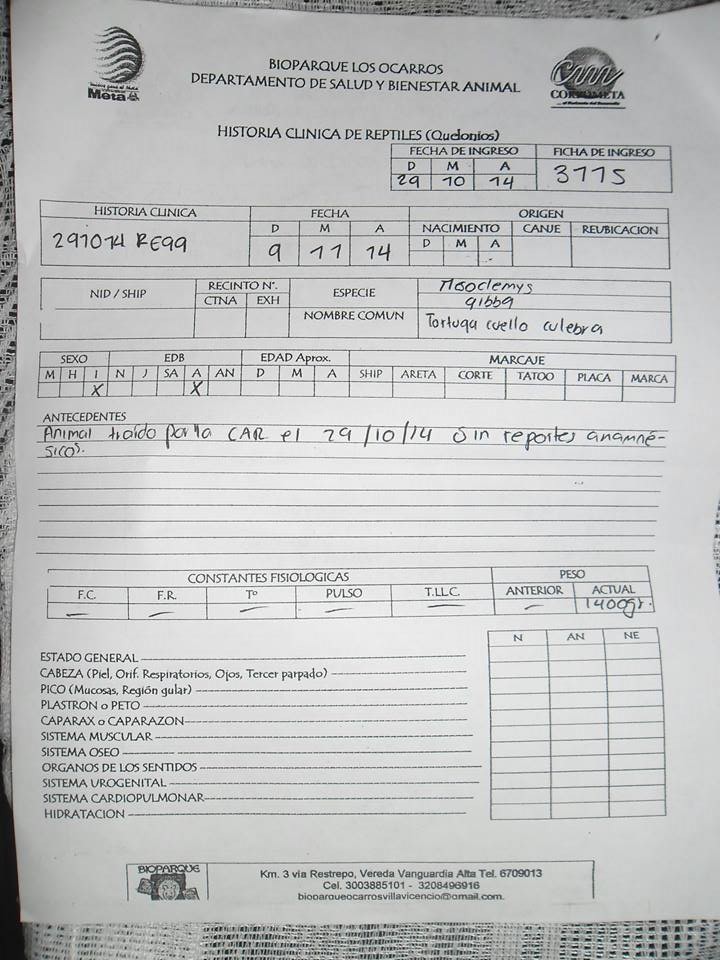 Meta
CORMACARENA
BIOPARQUE LOS OCARROS
DEPARTAMENTO DE SALUD Y BIENESTAR ANIMAL
HISTORIA CLINICA DE REPTILES (Quelonios)
FECHA DE INGRESO FICHA DE INGRESO
D M A
29 10 14 3775
HISTORIA CLINICA FECHA ORIGEN
D M A NACIMIENTO CANJE REUBICACION
291014 RE99 9 11 14 D M A
NID / SHIP RECINTO Nº. ESPECIE
CTNA EXH
gibba
NOMBRE COMUN Tortuga cuello culebra
SEXO EDB EDAD Aprox. MARCAJE
M H I N J SA A AN D M A SHIP ARETA CORTE TATOO PLACA MARCA
X X
ANTECEDENTES
Animal traído por la CAR el 29/10/14 Sin reportes anamné-
sicos.
CONSTANTES FISIOLOGICAS PESO
F.C. F.R. Tº PULSO T.LL.C. ANTERIOR ACTUAL
— — — — — — 1400gr.
N AN NE
ESTADO GENERAL
CABEZA (Piel, Orif. Respiratorios, Ojos, Tercer parpado)
PICO (Mucosas, Región gular)
PLASTRON o PETO
CAPARAX o CAPARAZON
SISTEMA MUSCULAR
SISTEMA OSEO
ORGANOS DE LOS SENTIDOS
SISTEMA UROGENITAL
SISTEMA CARDIOPULMONAR
HIDRATACION
BIOPARQUE
Km. 3 via Restrepo, Vereda Vanguardia Alta Tel. 6709013
Cel. 3003885101 - 3208496916
bioparqueocarrosvillavicencio@gmail.com.